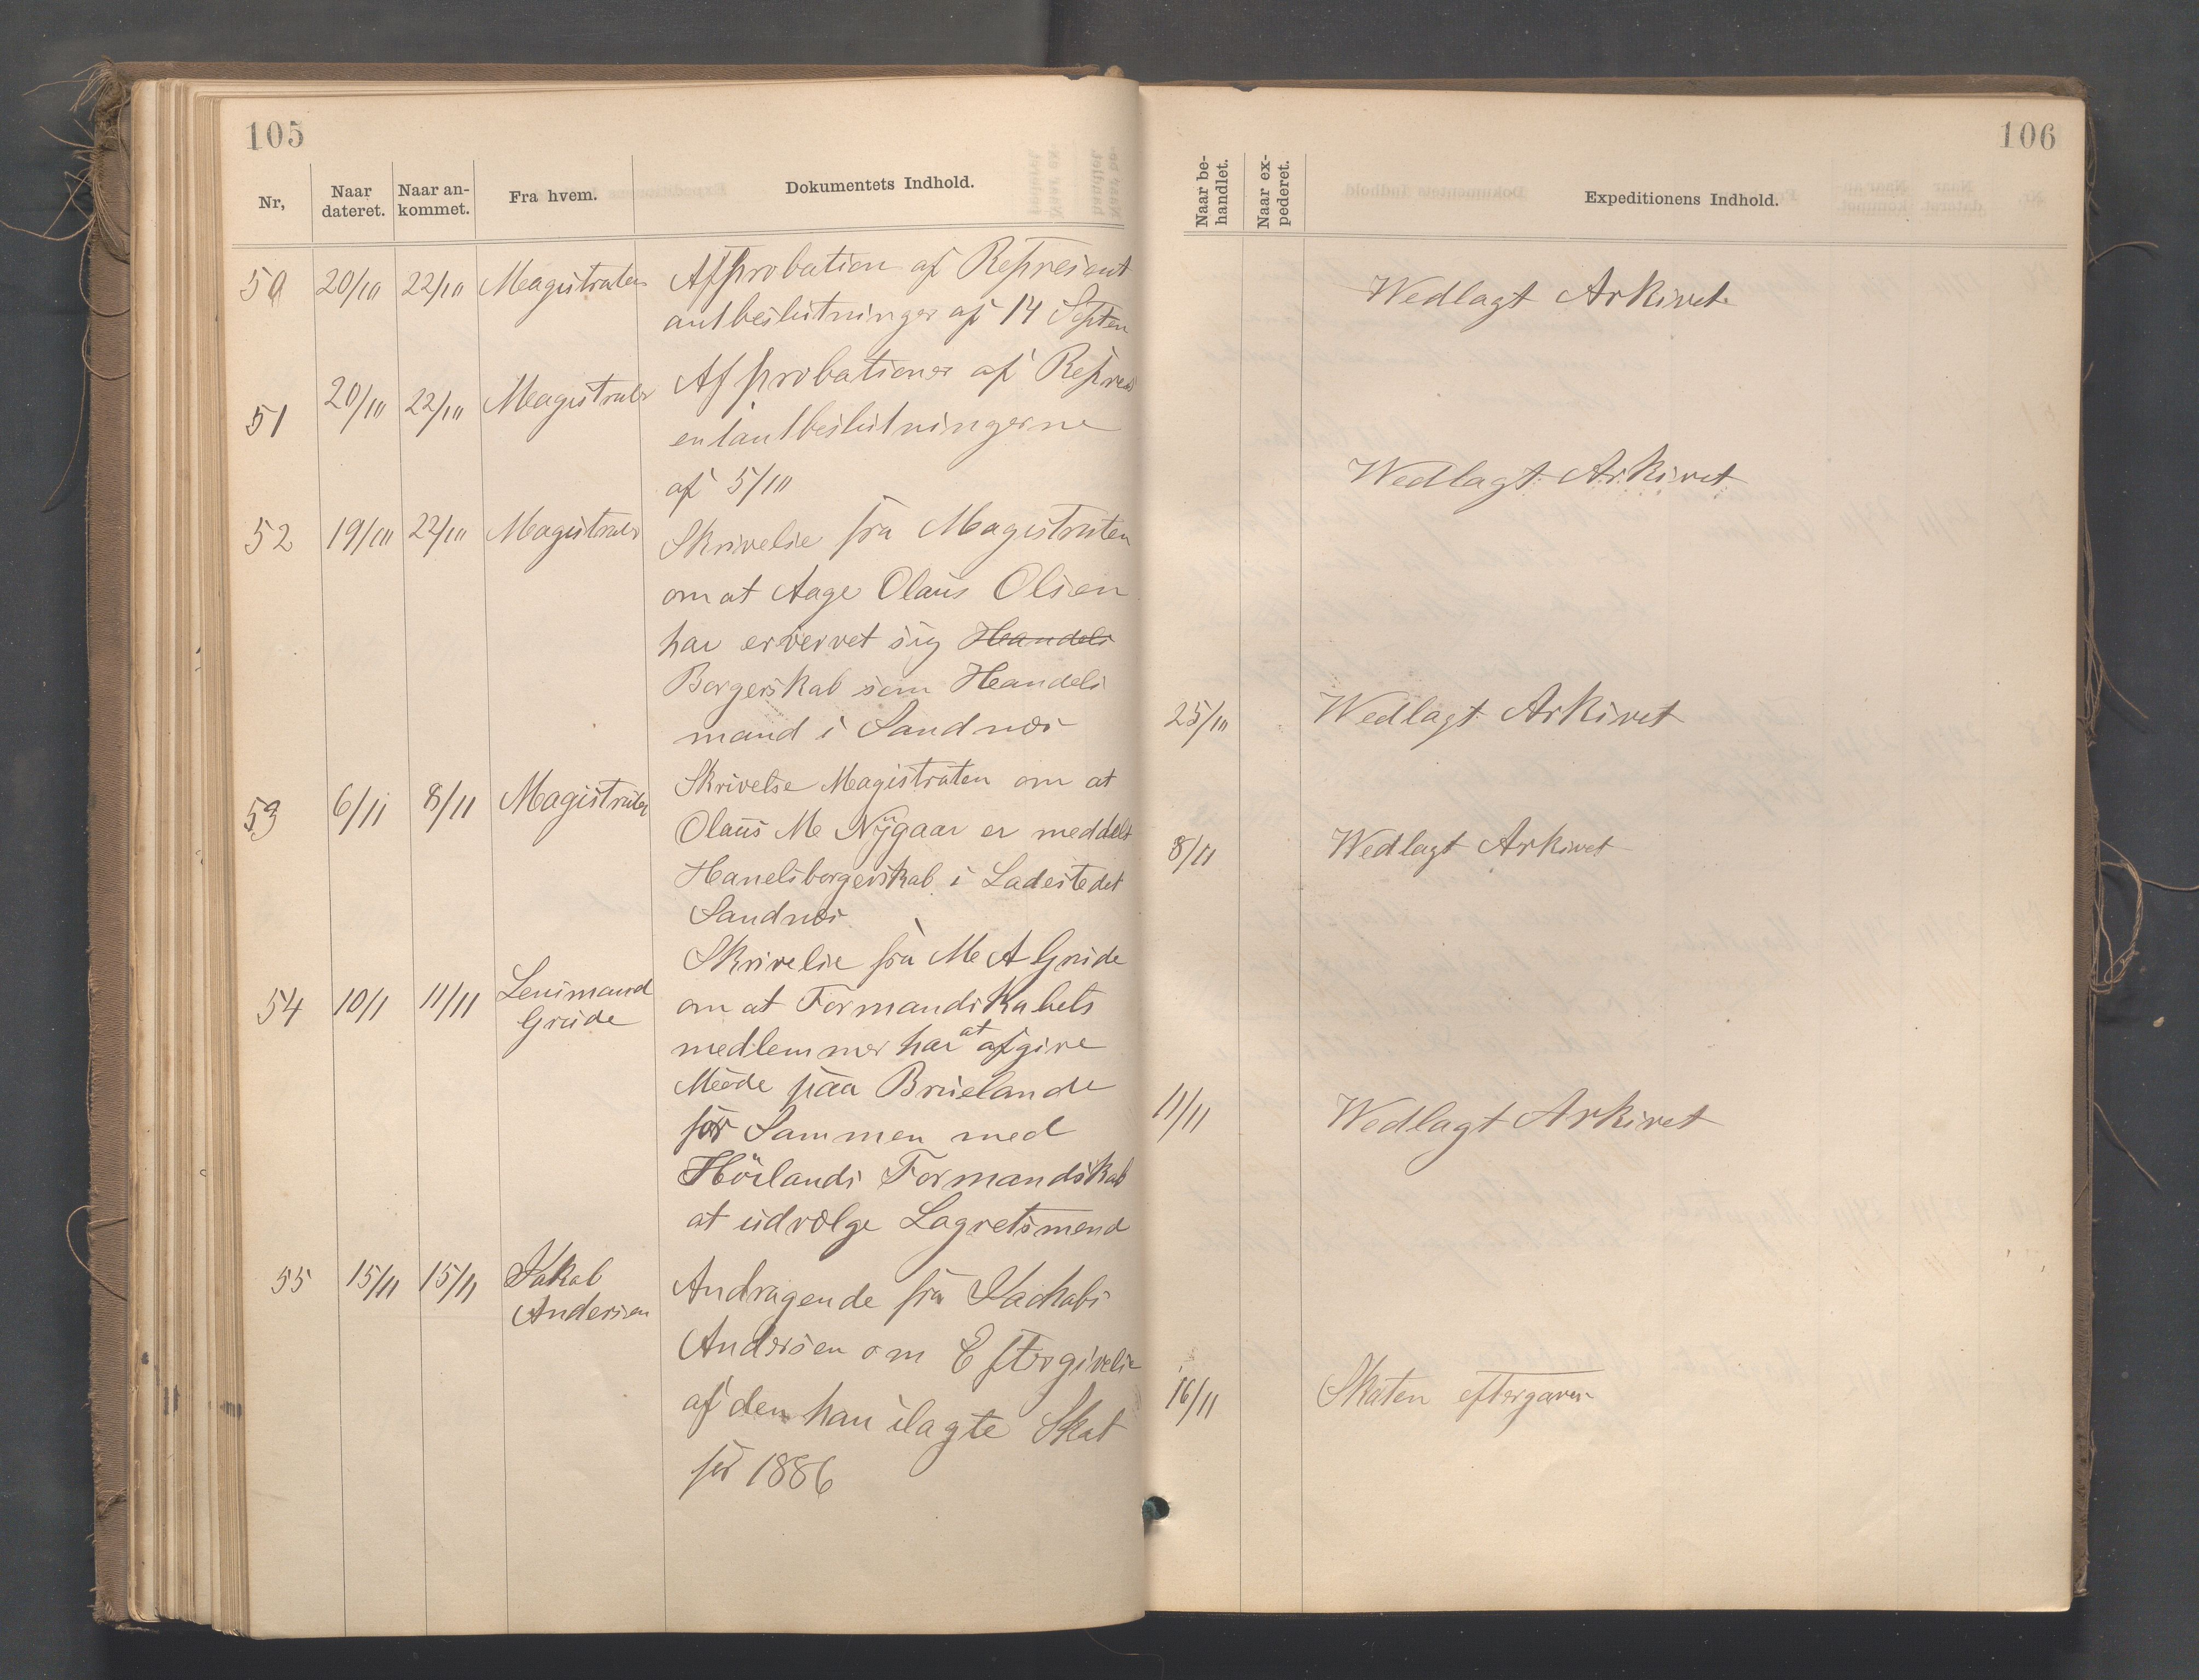 105
Nr,
Naar dateret.
Naar an-kommet.
Fra hvem.
Dokumentets Indhold.
50 20/10 22/10 Magistraten Approbation af Represent
antbeslutninger af 14 Septen
51 20/10 22/10 Magistraten Approbationer af Repres
entantbeslutningerne
af 5/10
52 19/10 22/10 Magistraten Skrivelse fra Magistraten
om at Aage Olaus Olsen
har erververvet sig Handels
Borgerskab som Handels
mand i Sandnæs
53 6/11 8/11 Magistraten Skrivelse Magistraten om at
Olaus M Nygaar er meddelt
Hanelsborgerskab i Ladestedet
Sandnæs
54 10/1 11/11 Lensmand Grude Skrivelse fra M A Grude
om at Formandskabets
medlemmer har at afgive
Møde paa Bruelande
for Sammen med
Hörlands Formandskab
at udvælge Lagretsmend
55 15/11 15/11 Jakob Andersen Andragende fra Jachobs
Andersen om Eftergivelse
af den han ilagte Skat
for 1886
106
Naar be-handlet.
Naar ex-pederet.
Expeditionens Indhold.
Wedlagt Arkivet
Wedlagt Arkivet
25/10 Wedlagt Arkivet
8/11 Wedlagt Arkivet
11/11 Wedlagt Arkivet
16/11 Skaten eftergaven